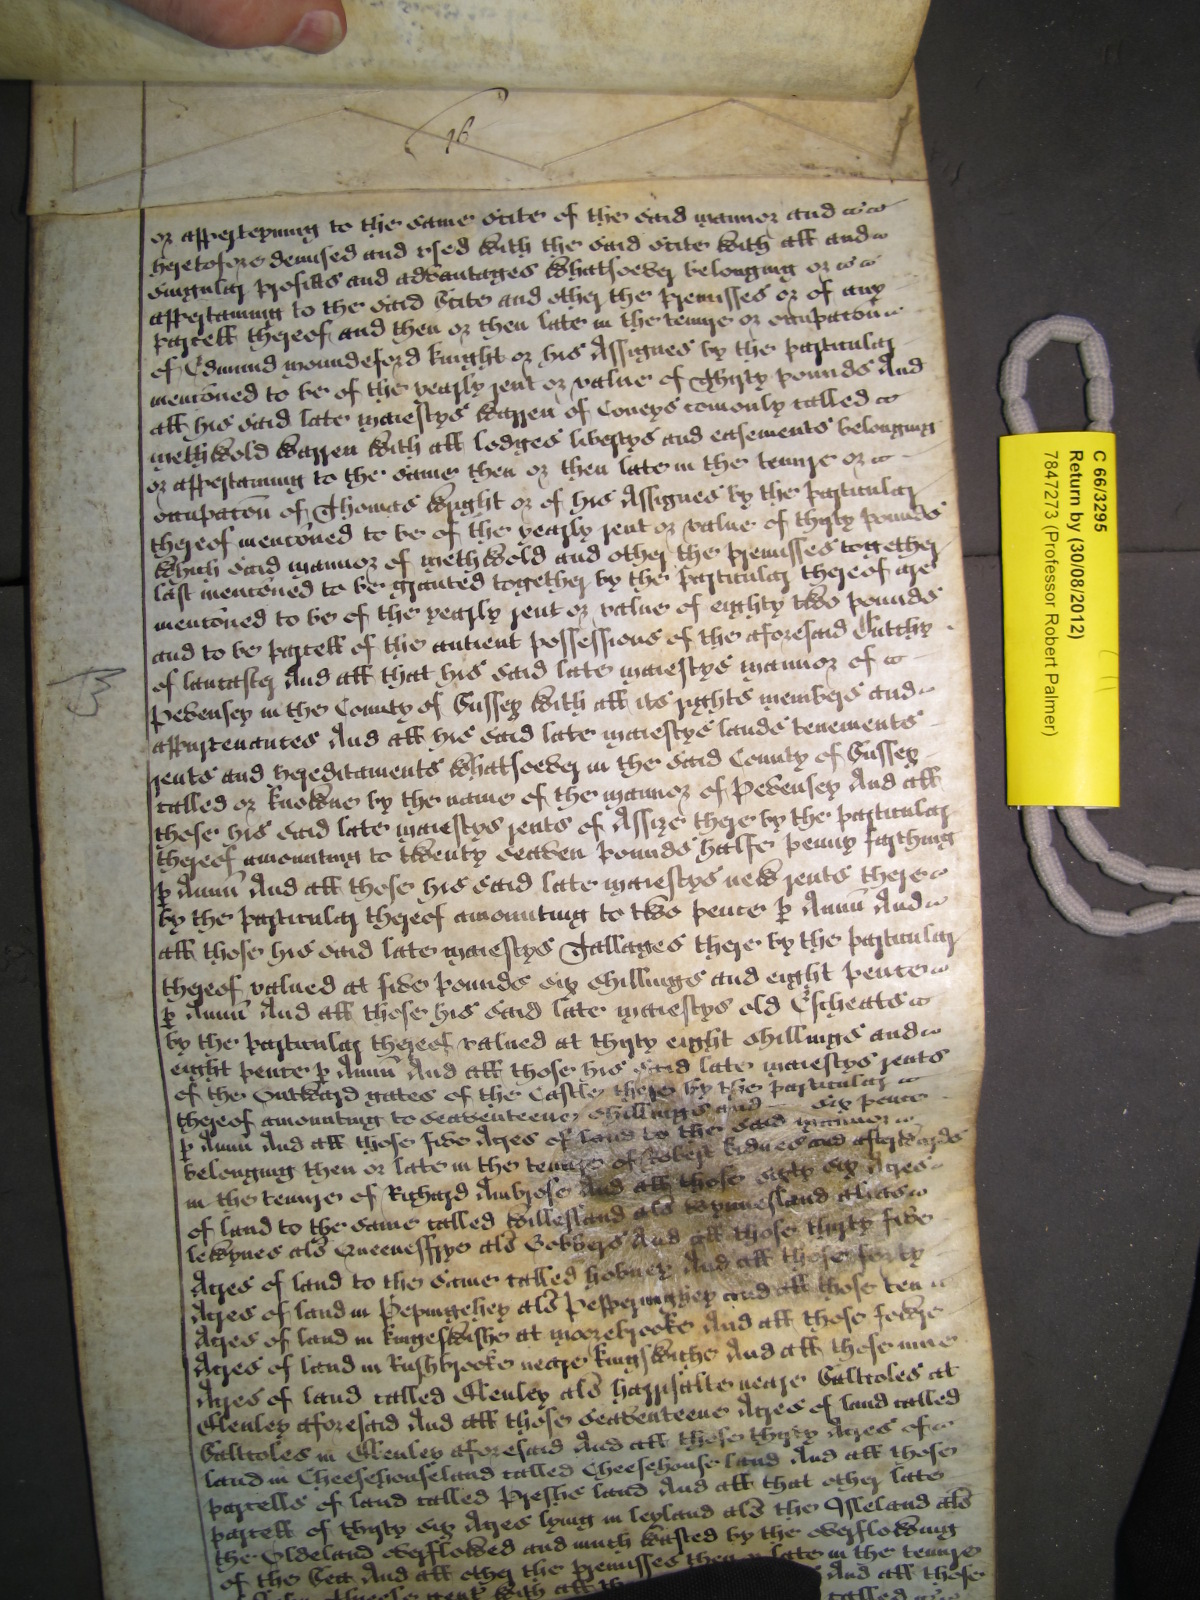 16
or apperteyning to the same Scite of the said mannor and
heretofore demised and used with the said Scite with all and
singular profitts and advantages whatsoever belonging or
appertaining to the said Scite and other the premisses or of any
parcell thereof and then or then late in the tenure or occupacon
of Edmund moundeford knight or his Assignes by the particular
mentioned to be of the yearly rent or value of Thirty pounds And
all his said late majestys warren of Coneys comonly called
methwold warren with all lodges libertys and easements belonging
or appertaining to the same then or then late in the tenure or
occupacon of Thomas Wright or of his Assignes by the particular
thereof mentoned to be of the yearly rent or value of thirty pounds
which said mannor of methwold and other the premisses together
last mentoned to be granted together by the particular thereof are
mentoned to be of the yearly rent or value of eighty two pounds
and to be parcell of the antient possessions of the aforesaid Dutchy
of lancaster And all that his said late majestys mannor of
Pevensey in the County of Sussex with all its rights members and
appurtenances And all his said late majestys lands tenements
rents and hereditaments whatsoever in the said County of Sussex
called or knowne by the name of the mannor of Pevensey And all
those his said late majestys rents of Assize there by the particular
thereof amounting to twenty seaven pounds halfe penny farthing
p Annu And all those his said late majestys new rents there
by the particular thereof amounting to two pence p Annu And
all those his said late majestys Tallages there by the particular
thereof valued at five pounds six shillings and eight pence
p Annu And all those his said late majestys old Escheats
by the particular thereof valued at thirty eight shillings and
eight pence p Annu And all those his said late majestys rents
of the Outward gates of the Castle there by the particular
thereof amounting to seaventeene shillings and six pence
p Annu And all those five Acres of land to the said mannor
belonging then or late in the tenure of Robert and afterwards
in the tenure of Richard Ambrose And all those sixty six Acres
of land to the same called Willesland als Wynnesland alias
lewynes als als And all those thirty five
Acres of land to the same called hobney And all those forty
Acres of land in Pepingehey als and all those ten
Acres of land in kingeswishe at moorebrooke And all those fowre
Acres of land in Rushbrooke neare kingswithe And all those nine
Acres of land called Glenley als neare Saltcoles at
Glenley aforesaid And all those seaventeene Acres of land called
Saltcoles in Glenley aforesaid And all those thirty Acres of
land in Cheesehouseland called Cheesehouse land And all those
parcells of land called land And all that other late
parcell of thirty six Acres lying in leyland als the Isseland als
the Oldeland overflowed and much wasted by the overflowing
of the Sea And all other the premisses then late in the tenure
with all And all those
C 66/3295
Return by (30/08/2012)
7847273 (Professor Robert Palmer)